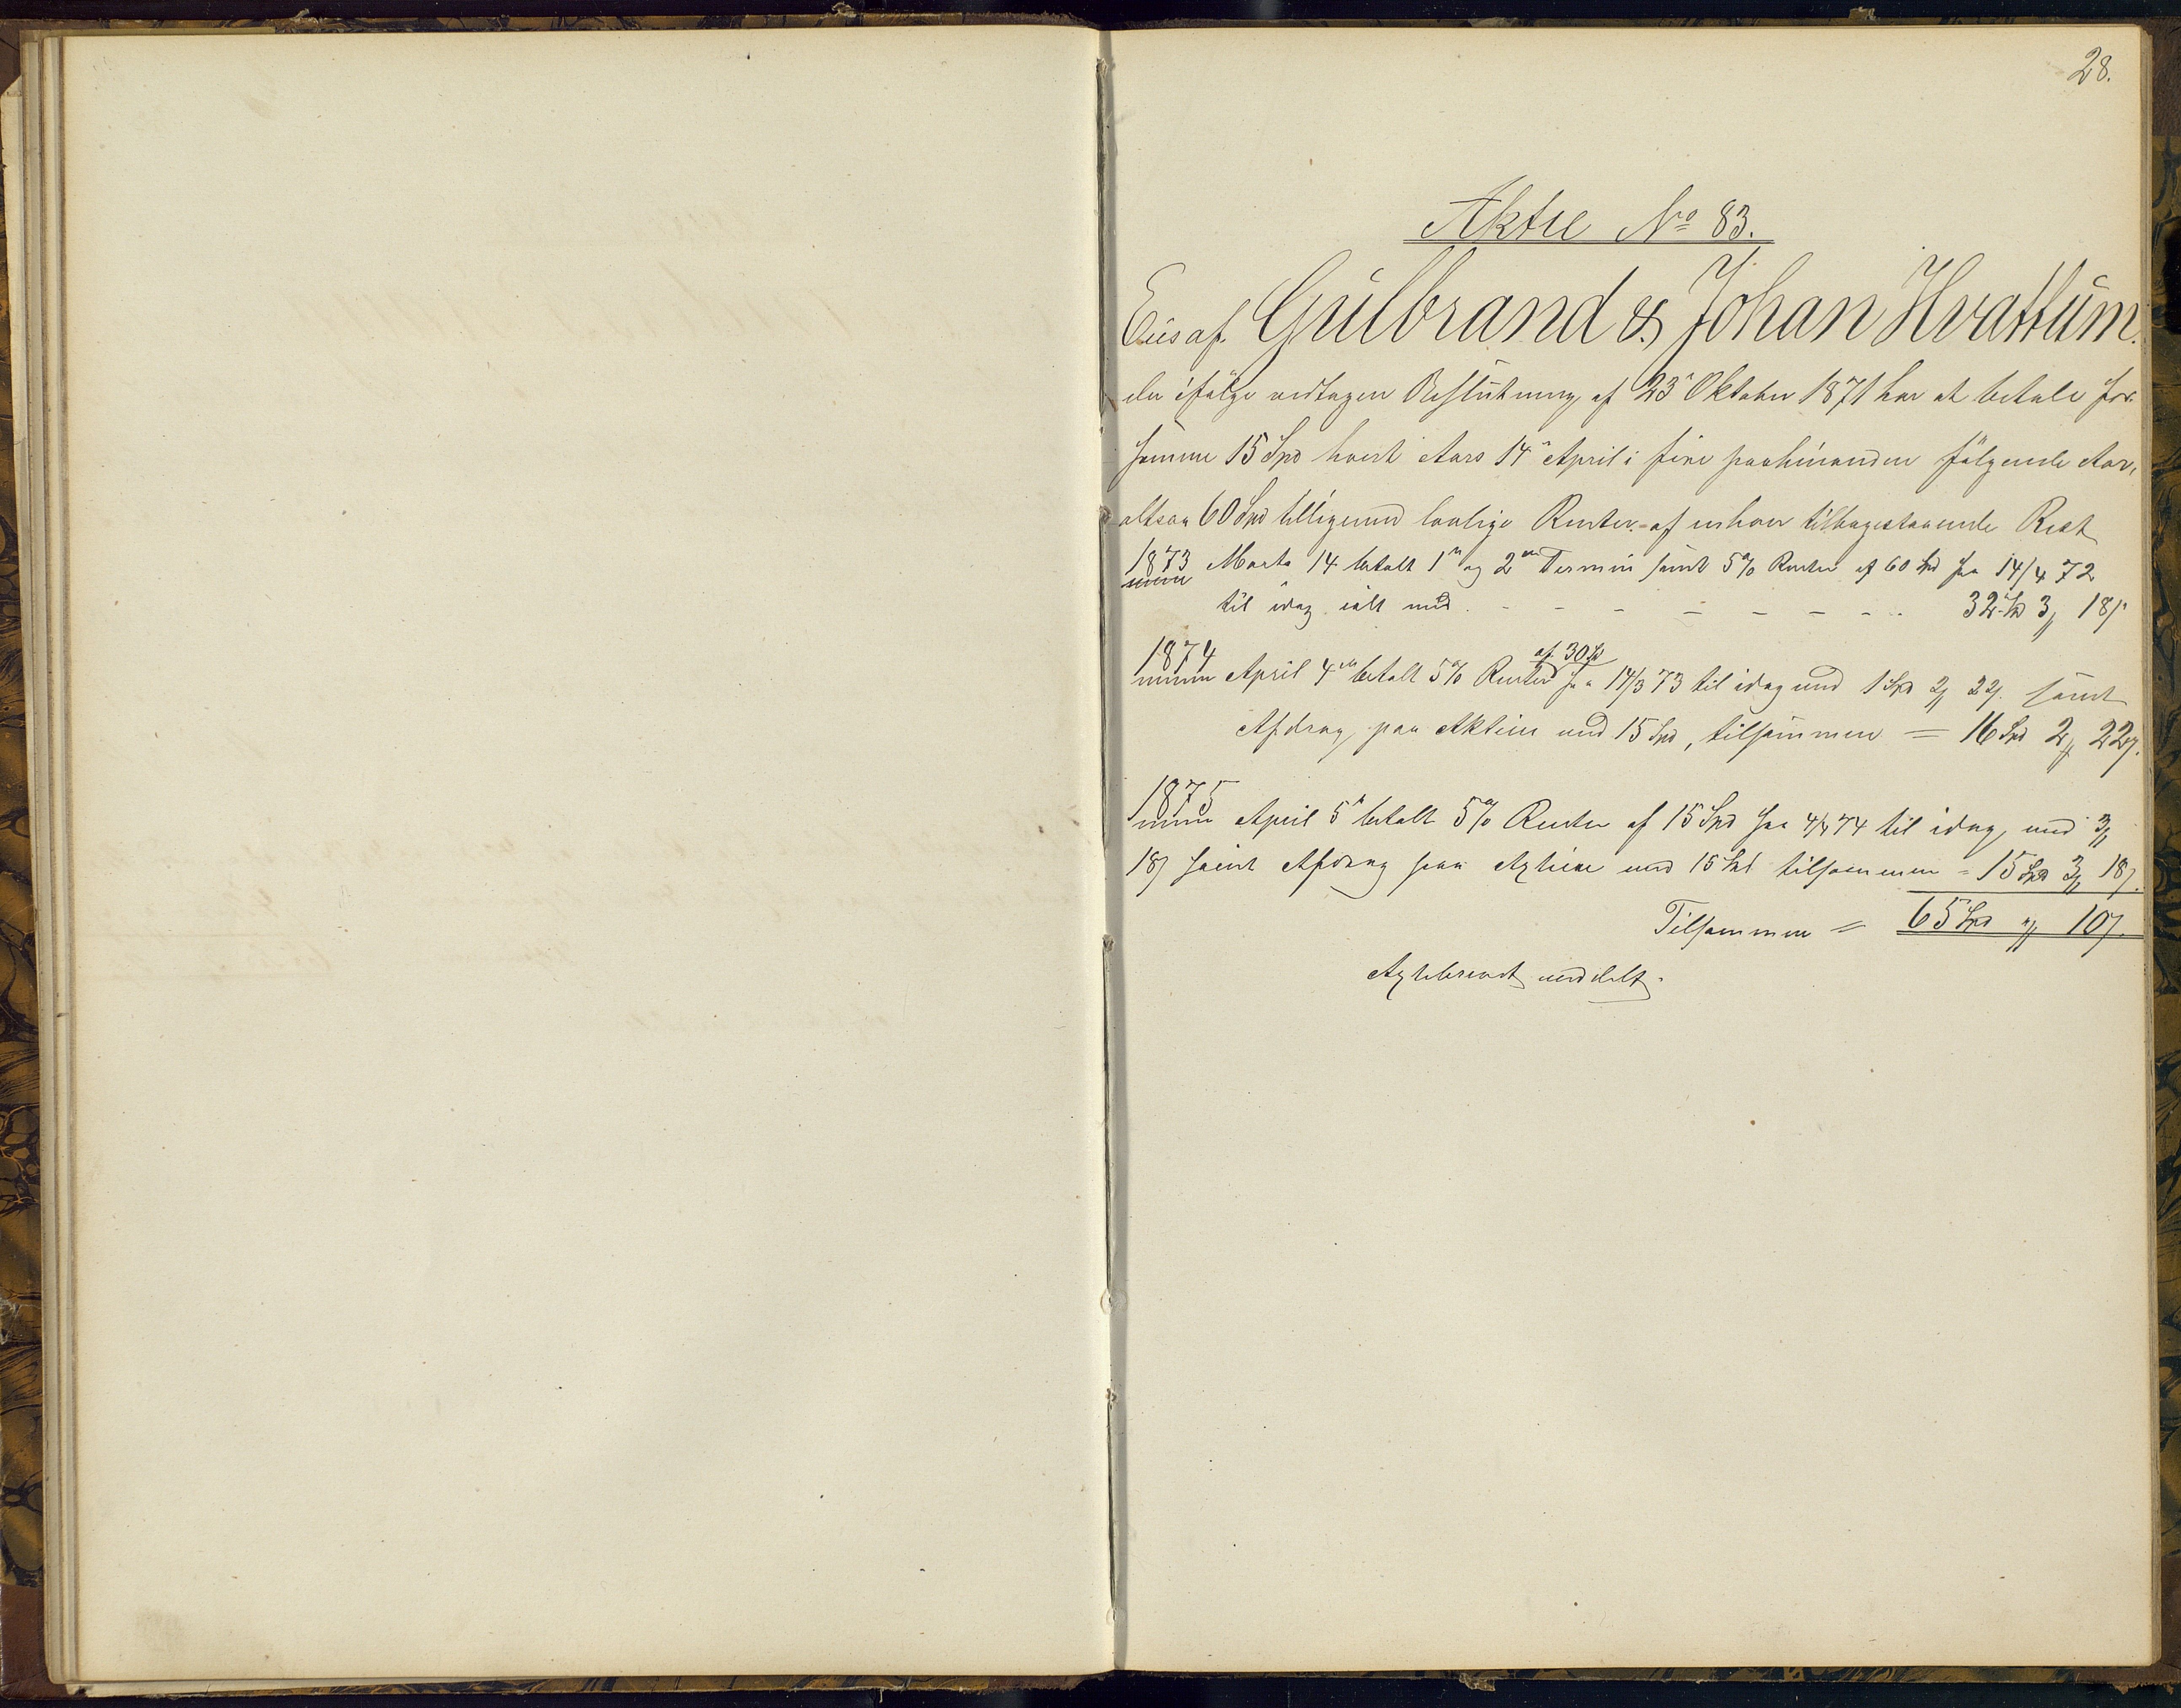 28.
Aktie No 83.
Eies af Gulbrand & Johan Hvattum.
der ifølge vedtagen Beslutning af 23de Oktober 1871 har at betale for
samme 15 Spd hvert Aars 14de April i fire paahinanden følgende Aar,
altsaa 60 Spd tilligemed lovlige Renter af enhver tilbagestaaende Rest
1873 Marts 14 betalt 1ste og 2den Termin samt 5% Renter af 60 Spd fra 14/4 72
til idag ialt med - - - - - - - - 32 Spd 3 ȷ 18 ȷ
af 30 Spd
1874 April 4de betalt 5% Renter fra 14/3 73 til idag med 1 Spd 2 ȷ 22 ȷ. samt
Afdrag paa Aktien med 15 Spd, tilsammen = 16 Spd 2 ȷ 22 ȷ.
1875 April 5te betalt 5% Renter af 15 Spd fra 4/4 74 til idag, med 3 ȷ
18 ȷ samt Afdrag paa Aktien med 15 Spd tilsammen = 15 Spd 3 ȷ 18 ȷ.
Tilsammen = 65 Spd " ȷ 10 ȷ.
Aktiebrevet meddelt.